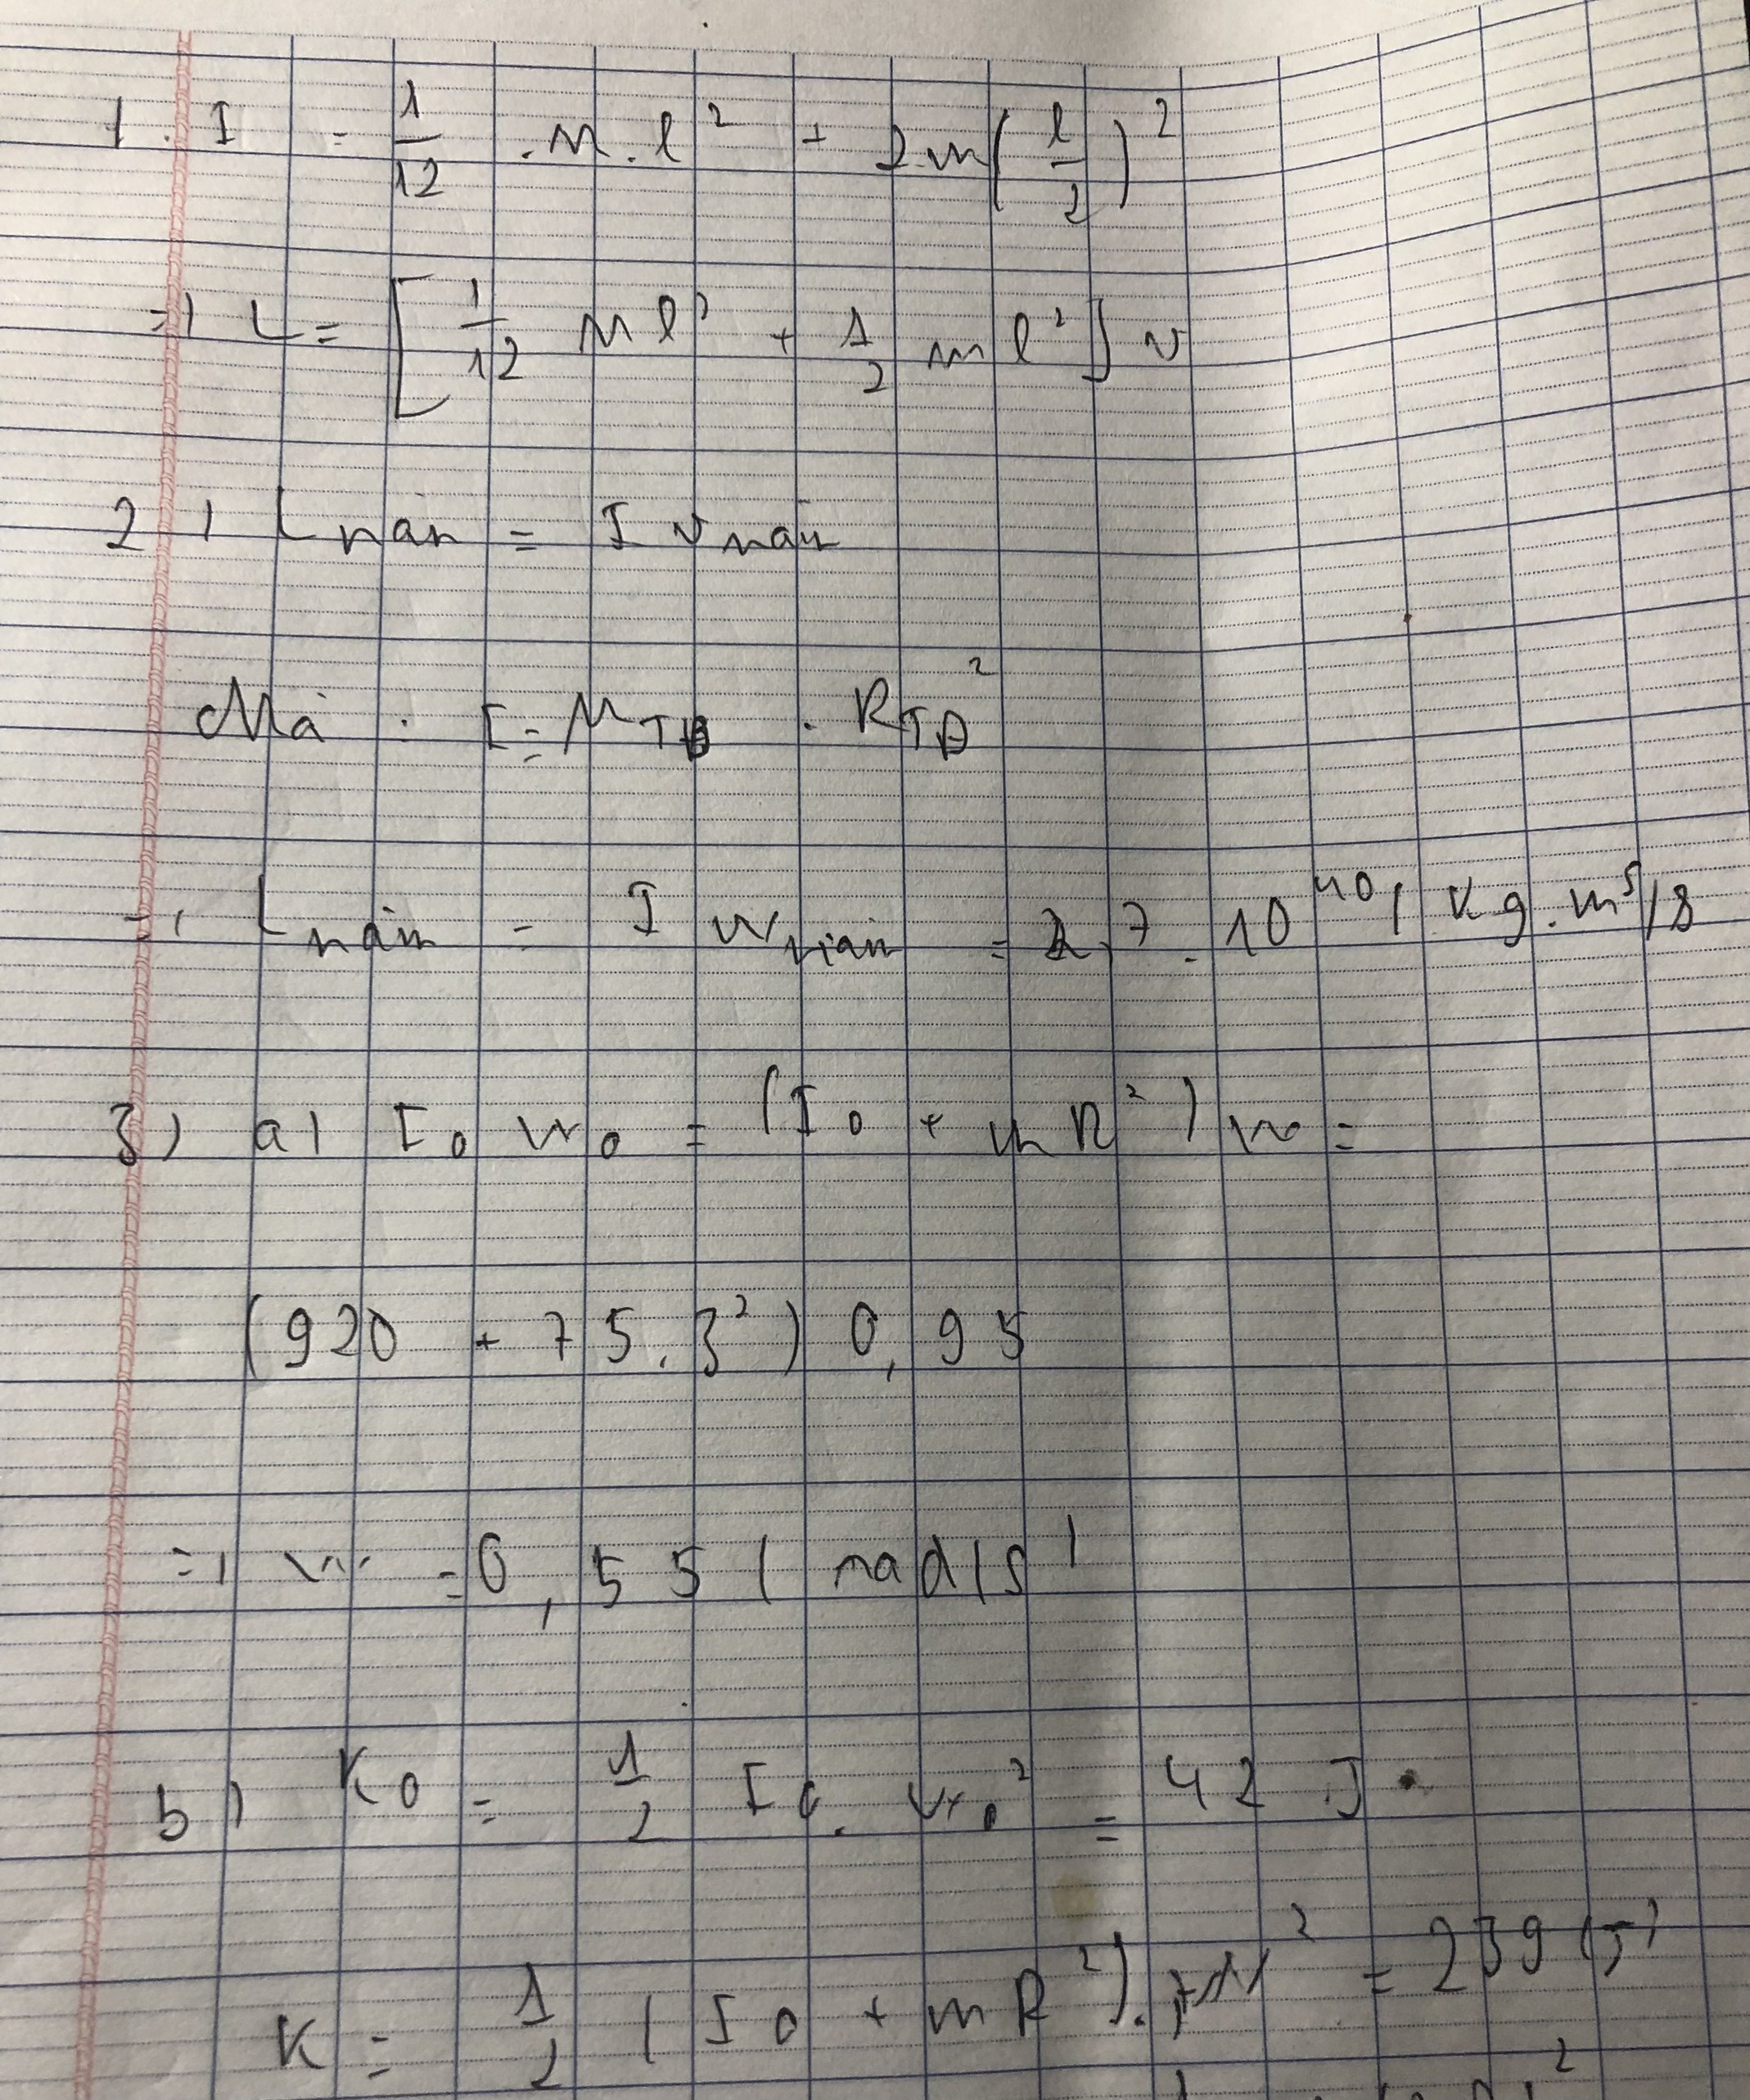 1. I = 1/12 . M . l² + 2m(l/2)²
=) L = [1/12 Ml² + 1/2 ml²] v
2) L năm = I v năm
Mà : I = M TĐ . R TĐ²
=) L năm = I w năm = 2,7 . 10⁴⁰ ( kg.m²/s
3) a) I₀ w₀ = (I₀ + mR²) w =
(920 + 75.3²) 0,95
=) w = 0,55 ( rad/s )
b) K₀ = 1/2 I₀ . w₀² = 42 J
K = 1/2 (I₀ + mR²) . w² = 239 (J)